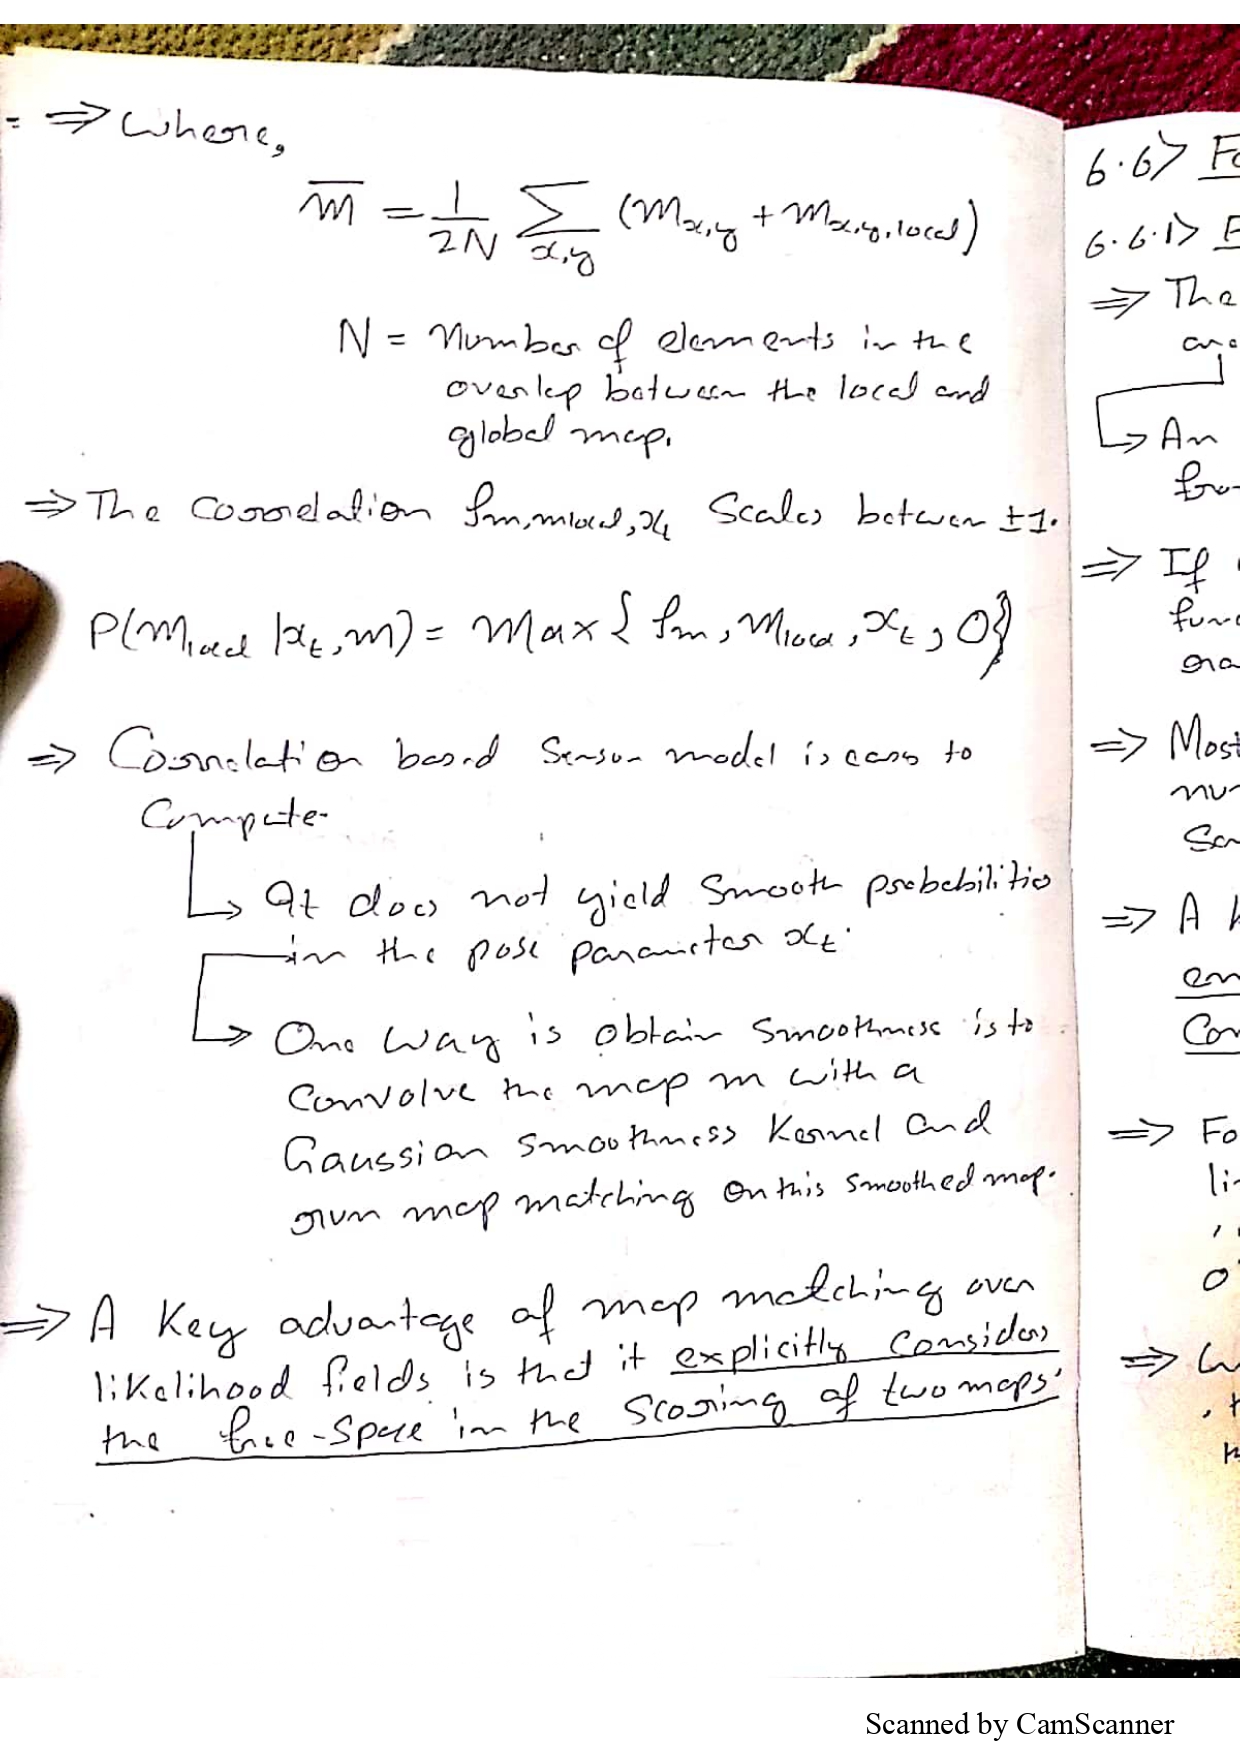 = ⇒ Where,
m̅ = 1/2N Σ x,y (m x,y + m x,y,local)
N = Number of elements in the
overlap between the local and
global map.
⇒ The Correlation ρm,mlocal,xt Scales between ±1.
P(mlocal | xt, m) = Max { ρm, mlocal, xt, 0}
⇒ Correlation based Sensor model is easy to
Compute.
↳ It does not yield Smooth probabilities
in the pose parameter xt.
↳ One way is obtain smoothness is to
Convolve the map m with a
Gaussian smoothness Kernel and
run map matching on this smoothed map.
⇒ A Key advantage of map matching over
likelihood fields is that it explicitly considers
the free-space in the scoring of two maps.
6.6> Fo
6.6.1> E
⇒ The
are
↳ An
fro
⇒ If
func
ra
⇒ Most
nu
Sen
⇒ A k
en
Con
⇒ Fo
li
⇒
Scanned by CamScanner